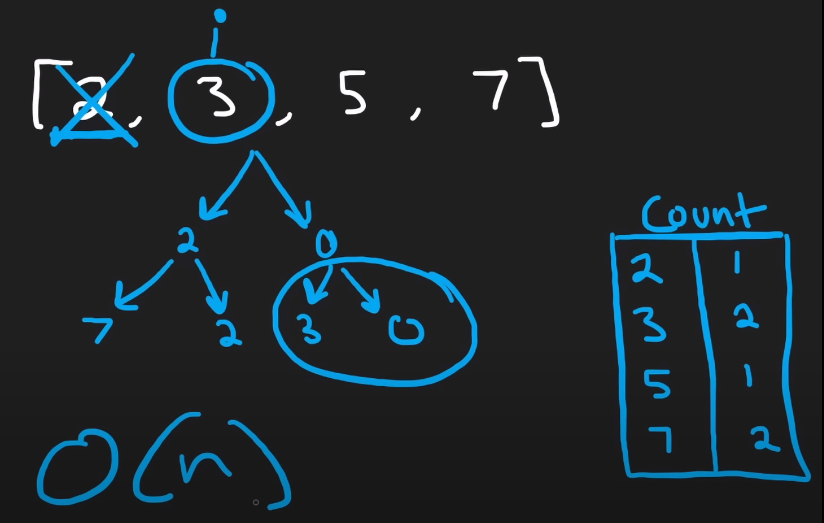 i
[2, 3, 5, 7]
2 0
7 2 3 0
Count
2 1
3 2
5 1
7 2
O(n)